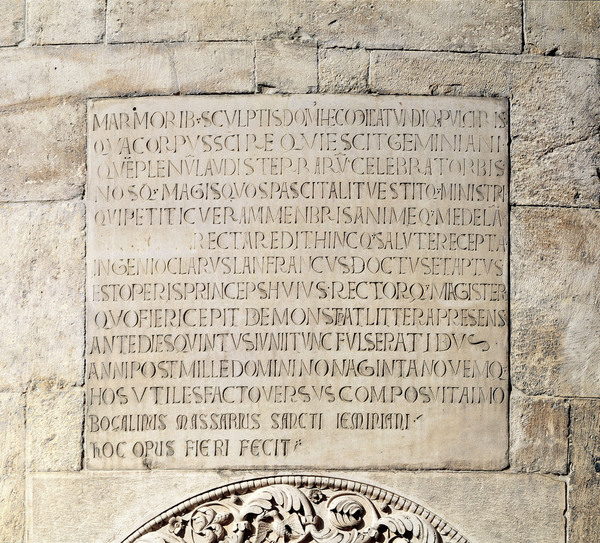 MARMORIB· SCVLPTIS DOM' HEC MICAT VNDIQ· PVLCHRIS
QVA CORPVS SCI REQVIESCIT GEMINIANI
QVĒ PLENV̄ LAVDIS TERRARV̄ CELEBRAT ORBIS
NOSQ· MAGIS QVOS PASCIT ALIT VESTITQ· MINISTRI
QVI PETIT IC VERAM MENBRIS ANIMEQ· MEDELĀ
RECTA REDIT HINCQ· SALVTE RECEPTA
INGENIO CLARVS LANFRANCVS DOCTVS ET APTVS
EST OPERIS PRINCEPS HVIVS· RECTORQ· MAGISTER
QVO FIERI CEPIT DEMONSTRAT LITTERA PRESENS
ANTE DIES QVINTVS IVNII TVNC FVLSERAT IDVS
ANNI POST MILLE DOMINI NONAGINTA NOVEMQ·
HOS VTILES FACTO VERSVS COMPOSVIT AIMO
BOCALINVS MASSARIVS SANCTI IEMINIANI
HOC OPVS FIERI FECIT